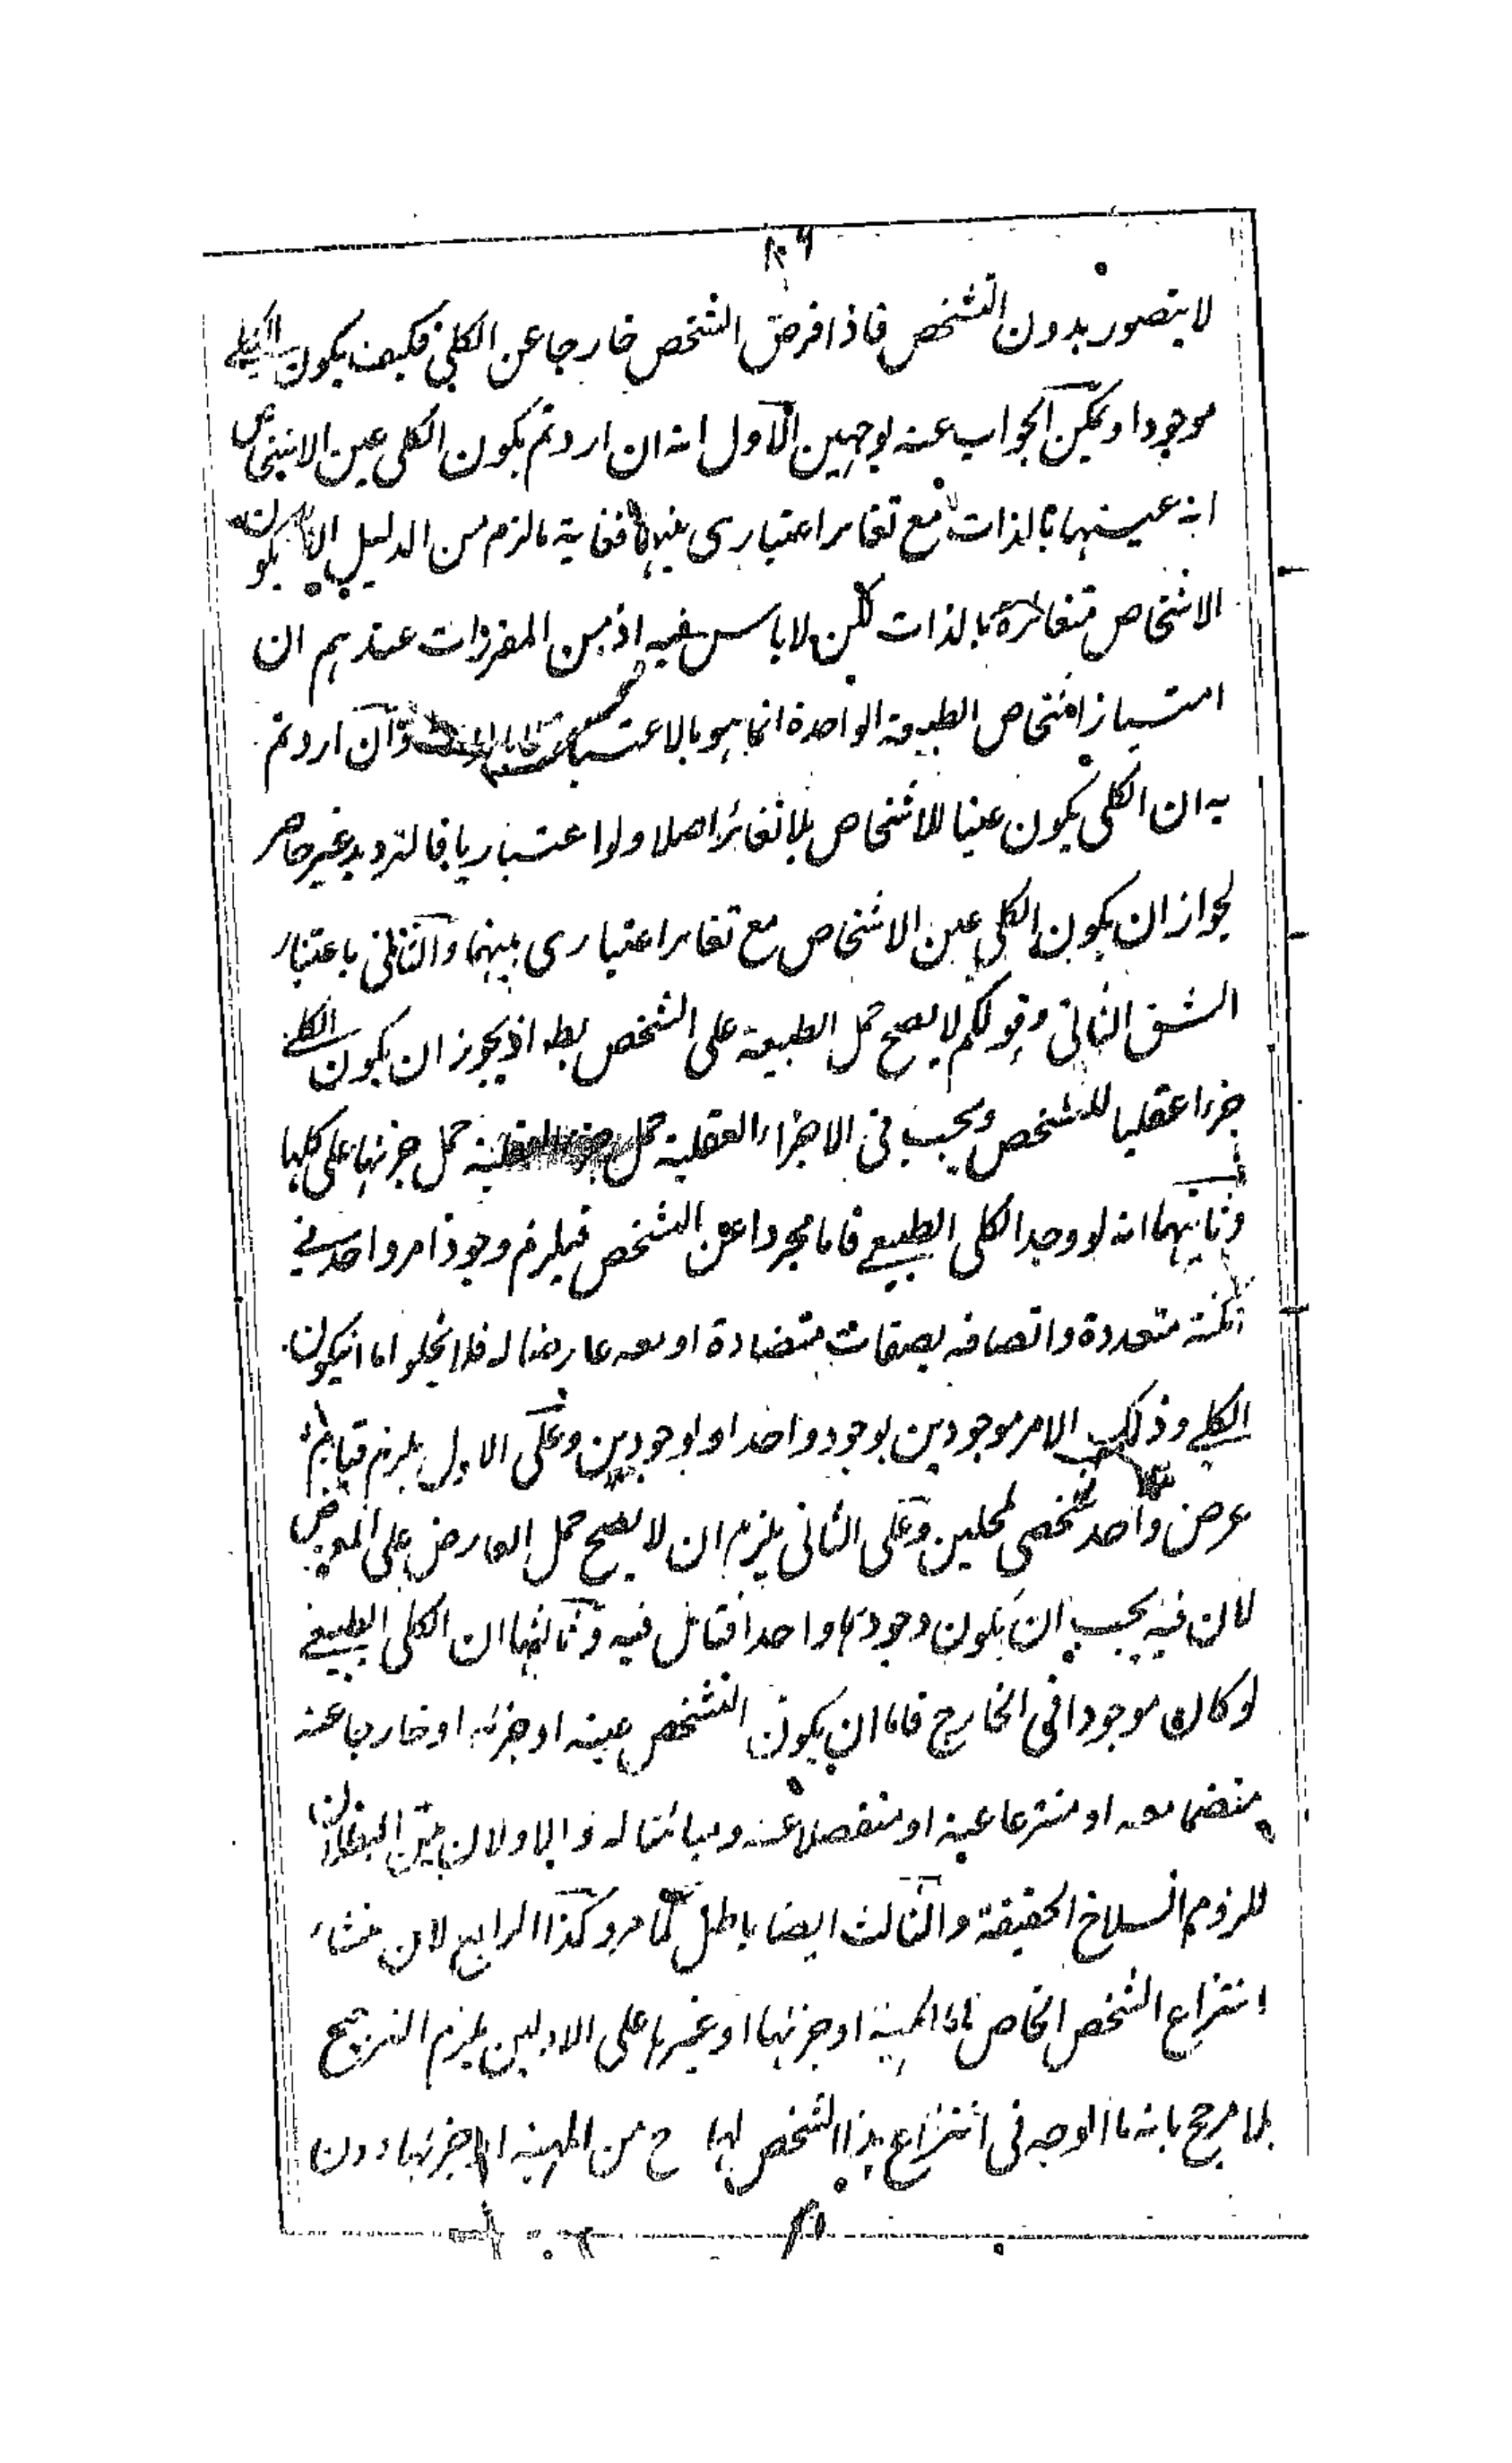 لا يتصور بدون التشخص فاذا فرض التشخص خارجا عن الكلي فكيف يكون الكلي
موجودا ويمكن الجواب عنه بوجهين الاول انه ان اردتم بكون الكلي عين الاشخاص
انه عينها بالذات مع تغاير اعتباري بينهما فغاية ما لزم من الدليل ان لا يكون
الاشخاص متغائرة بالذات لكن لا باس فيه اذ من المقررات عندهم ان
امتياز اشخاص الطبيعة الواحدة انما هو بالاعتبار وان اردتم
به ان الكلي يكون عينا للاشخاص بلا تغائر اصلا ولو اعتباريا فالترديد غير حاصر
لجواز ان يكون الكلي عين الاشخاص مع تغاير اعتباري بينهما والثاني باختيار
الشق الثاني وقولكم لا يصح حمل الطبيعة على الشخص بط اذ يجوز ان يكون الكلي
جزءا عقليا للشخص ويجب في الاجزاء العقلية حمل جزئها على كلها
وثانيهما انه لو وجد الكلي الطبيعي فاما مجردا عن التشخص فيلزم وجود امر واحد في
امكنة متعددة واتصافه بصفات متضادة او معه عارضا له فلا يخلو اما ان يكون
الكلي وذلك الامر موجودين بوجود واحد او بوجودين وعلى الاول يلزم قيام
عرض واحد شخصي لمحلين وعلى الثاني يلزم ان لا يصح حمل العارض على المعروض
لان فيه يجب ان يكون وجودهما واحدا فتامل فيه وثالثها ان الكلي الطبيعي
لو كان موجودا في الخارج فاما ان يكون التشخص عينه او جزئه او خارجا عنه
منضما معه او منتزعا عنه او منفصلا عنه ومبائنا له والاولان بين البطلان
للزوم انسلاخ الحقيقة والثالث ايضا باطل كما مر وكذا الرابع لان منشاء
انتزاع التشخص الخاص اما المهية او جزئها او غيرها على الاولين يلزم الترجيح
بلا مرجح بانه ما الوجه في انتزاع هذا التشخص لها ح من المهية او جزئها دون